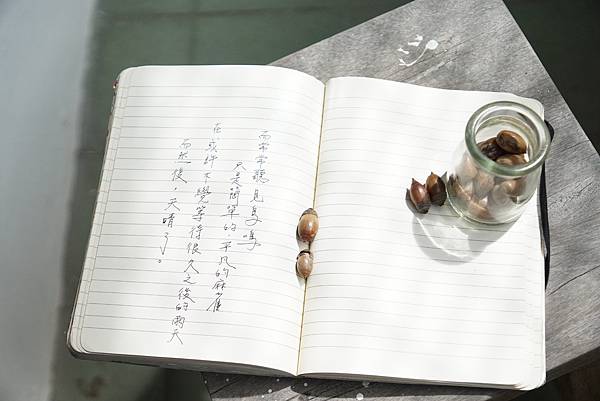 而常常聽見鳥鳴
只是簡單的、平凡的麻雀
在或許不覺等待很久之後的雨天
而然後，天晴了。